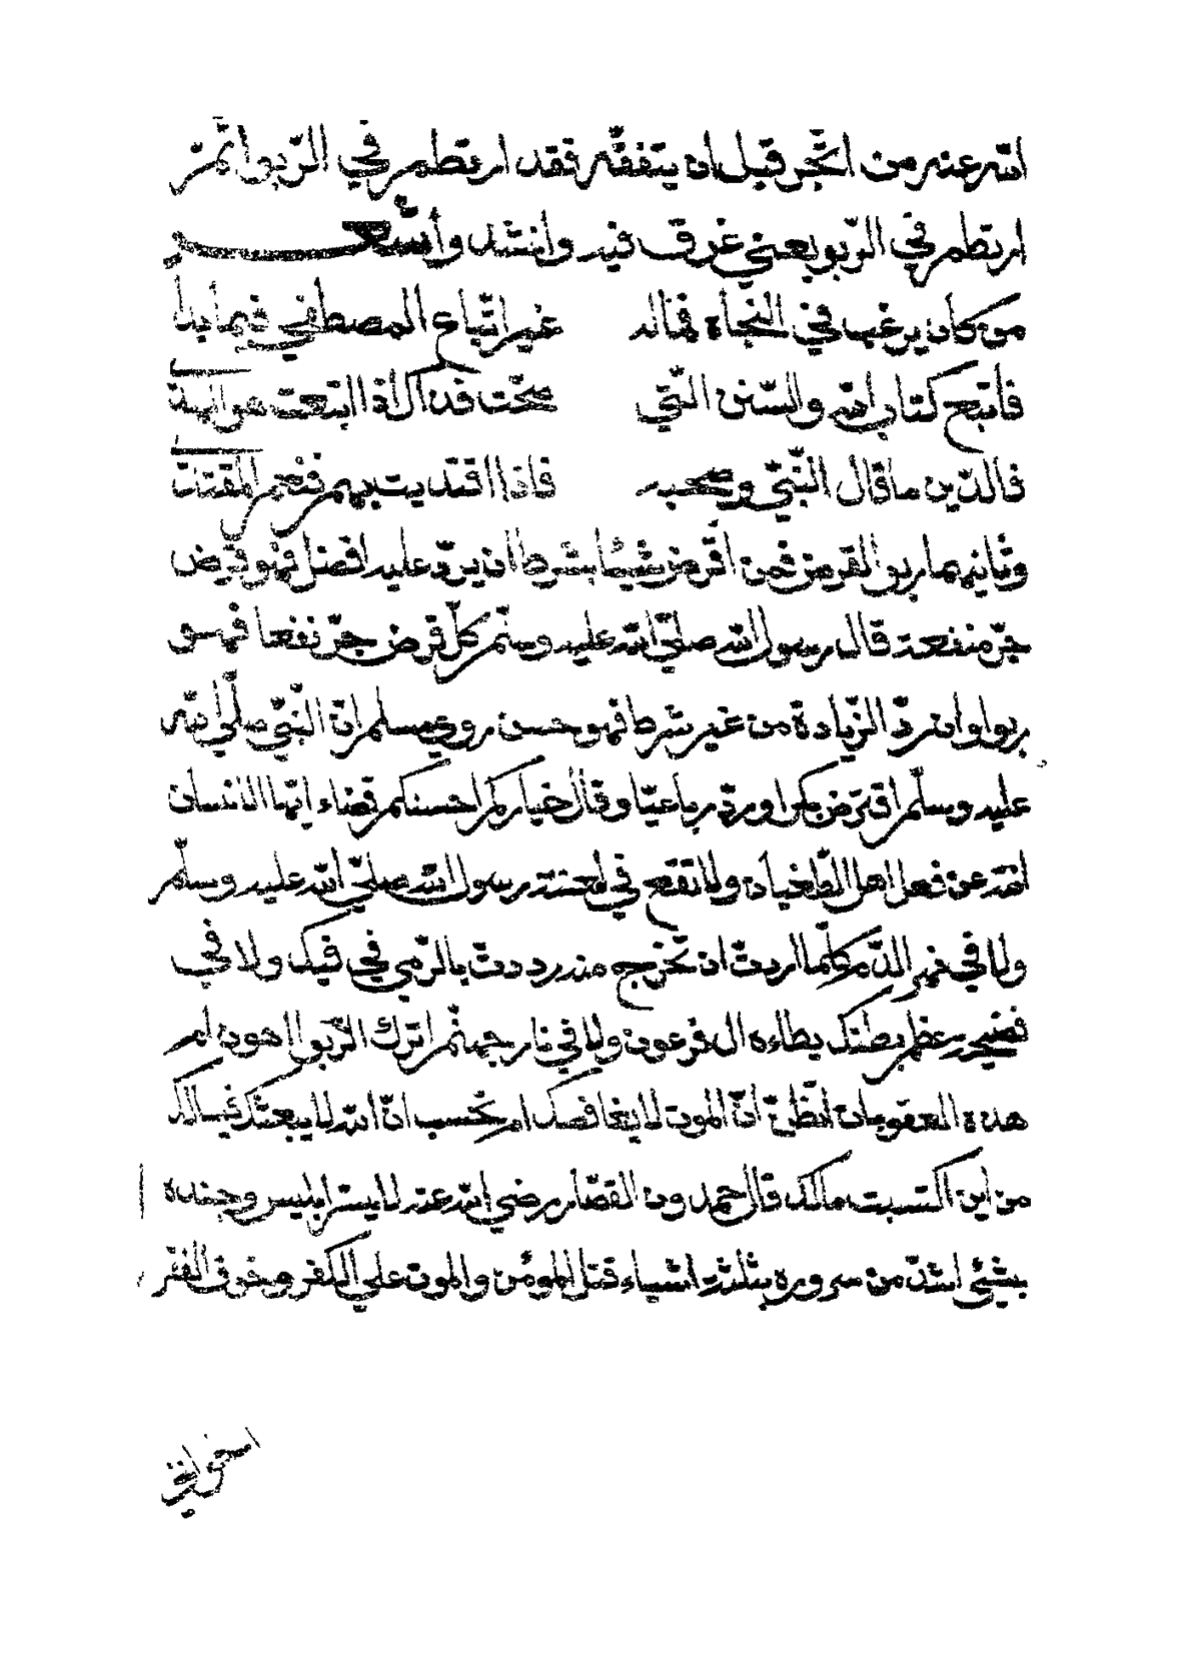 الله عنه من اتّجر قبل ان يتفقّه فقد ارتطم في الرّبوا ثمّ
ارتطم في الرّبو يعني غرق فيه وانشد وأشعـــر
من كان يرغب في النجاة فماله غير اتّباع المصطفي فيما
فاتبع كتاب الله والسّنن الّتي صحّت فذاك اذا اتبعت هو
فالدّين ما قال النّبيّ وصحبه فاذا اقتديت بهم فنعم
وثانيهما ربوا القرض فمن أقرض شيئا بشرط ان يردّ عليه افضل فهو قرض
جرّ منفعة قال رسول الله صلّي الله عليه وسلّم كلّ قرض جرّ نفعا فهو
ربوا وان ردّ الزّيادة من غير شرط فهو حسن روي مسلم انّ النّبيّ صلّي الله
عليه وسلّم اقترض بكرا وردّ رباعيّا وقال خياركم احسنكم قضاء ايّها الانسان
انته عن فعل اهل الطّغيان ولا تقع في لعنة رسول الله صلّي الله عليه وسلّم
ولا في نهر الدّم كلّما اردت ان تخرج منه رددت بالرّمي في فيك ولا في
عظم بطنك يطاءه ال فرعون ولا في نار جهنّم اترك الرّبوا اهون ام
هذه العقوبات اتظنّ انّ الموت لا يغافصك ام تحسب انّ الله لا يبعثك فيسالك
من اين اكتسبت مالك قال حمدون القصّار رضي الله عنه لا يسرّ ابليس وجنده
بشيئ اشدّ من سروره بثلثة اشياء قتل المؤمن والموت علي الكفر وخوف الفقر